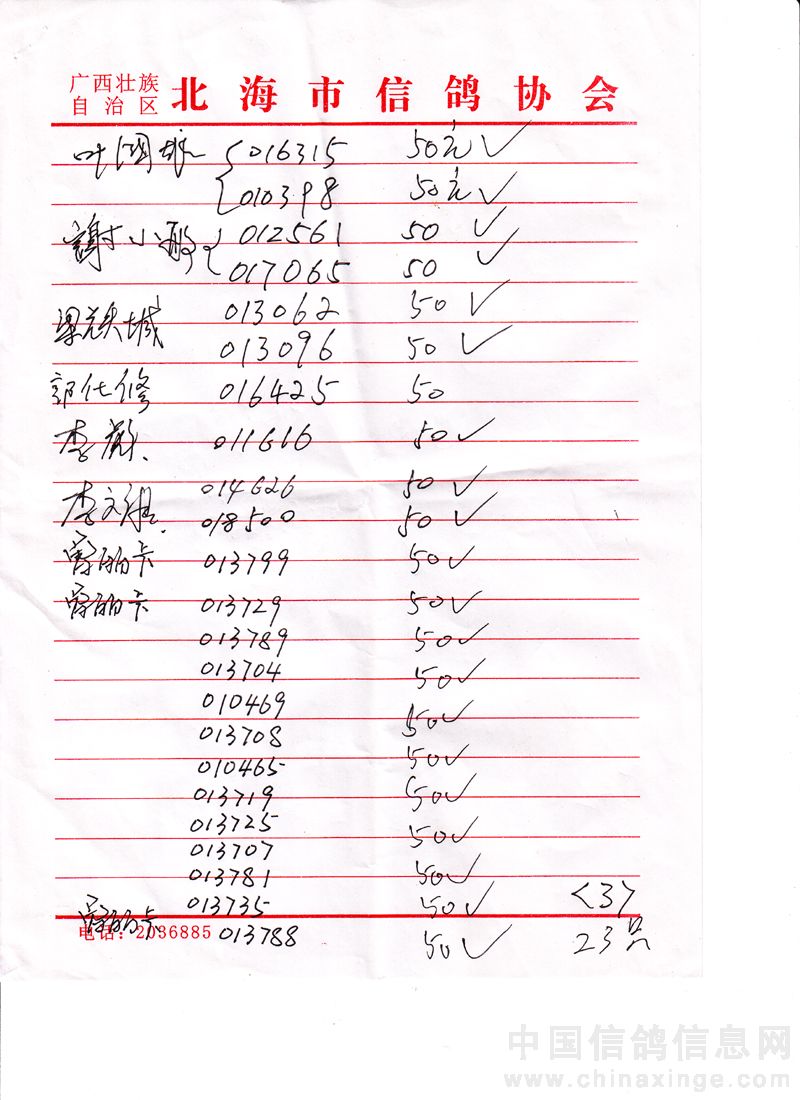 广西壮族
自治区 北海市信鸽协会
叶国雄 { 016315 50元 ✓
{ 010398 50元 ✓
謝小 { 012561 50 ✓
017065 50 ✓
梁 城 013062 50 ✓
013096 50 ✓
郭仕修 016425 50
李 011616 50 ✓
014626 50 ✓
李文 018500 50 ✓
卡 013799 50 ✓
卡 013729 50 ✓
013789 50 ✓
013704 50 ✓
010469
013708 50 ✓
010465 50 ✓
013719 50 ✓
013725 50 ✓
013707
013781 50 ✓
013735 50 ✓ <3>
卡
电话：2036885 013788 50 ✓ 23只
中国信鸽信息网
www.chinaxinge.com